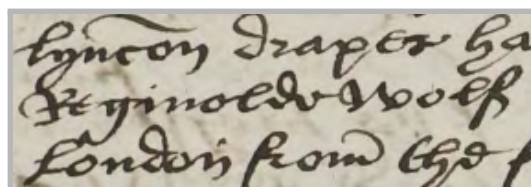 lyncon draper ha
Reginolde Wolf
London from the